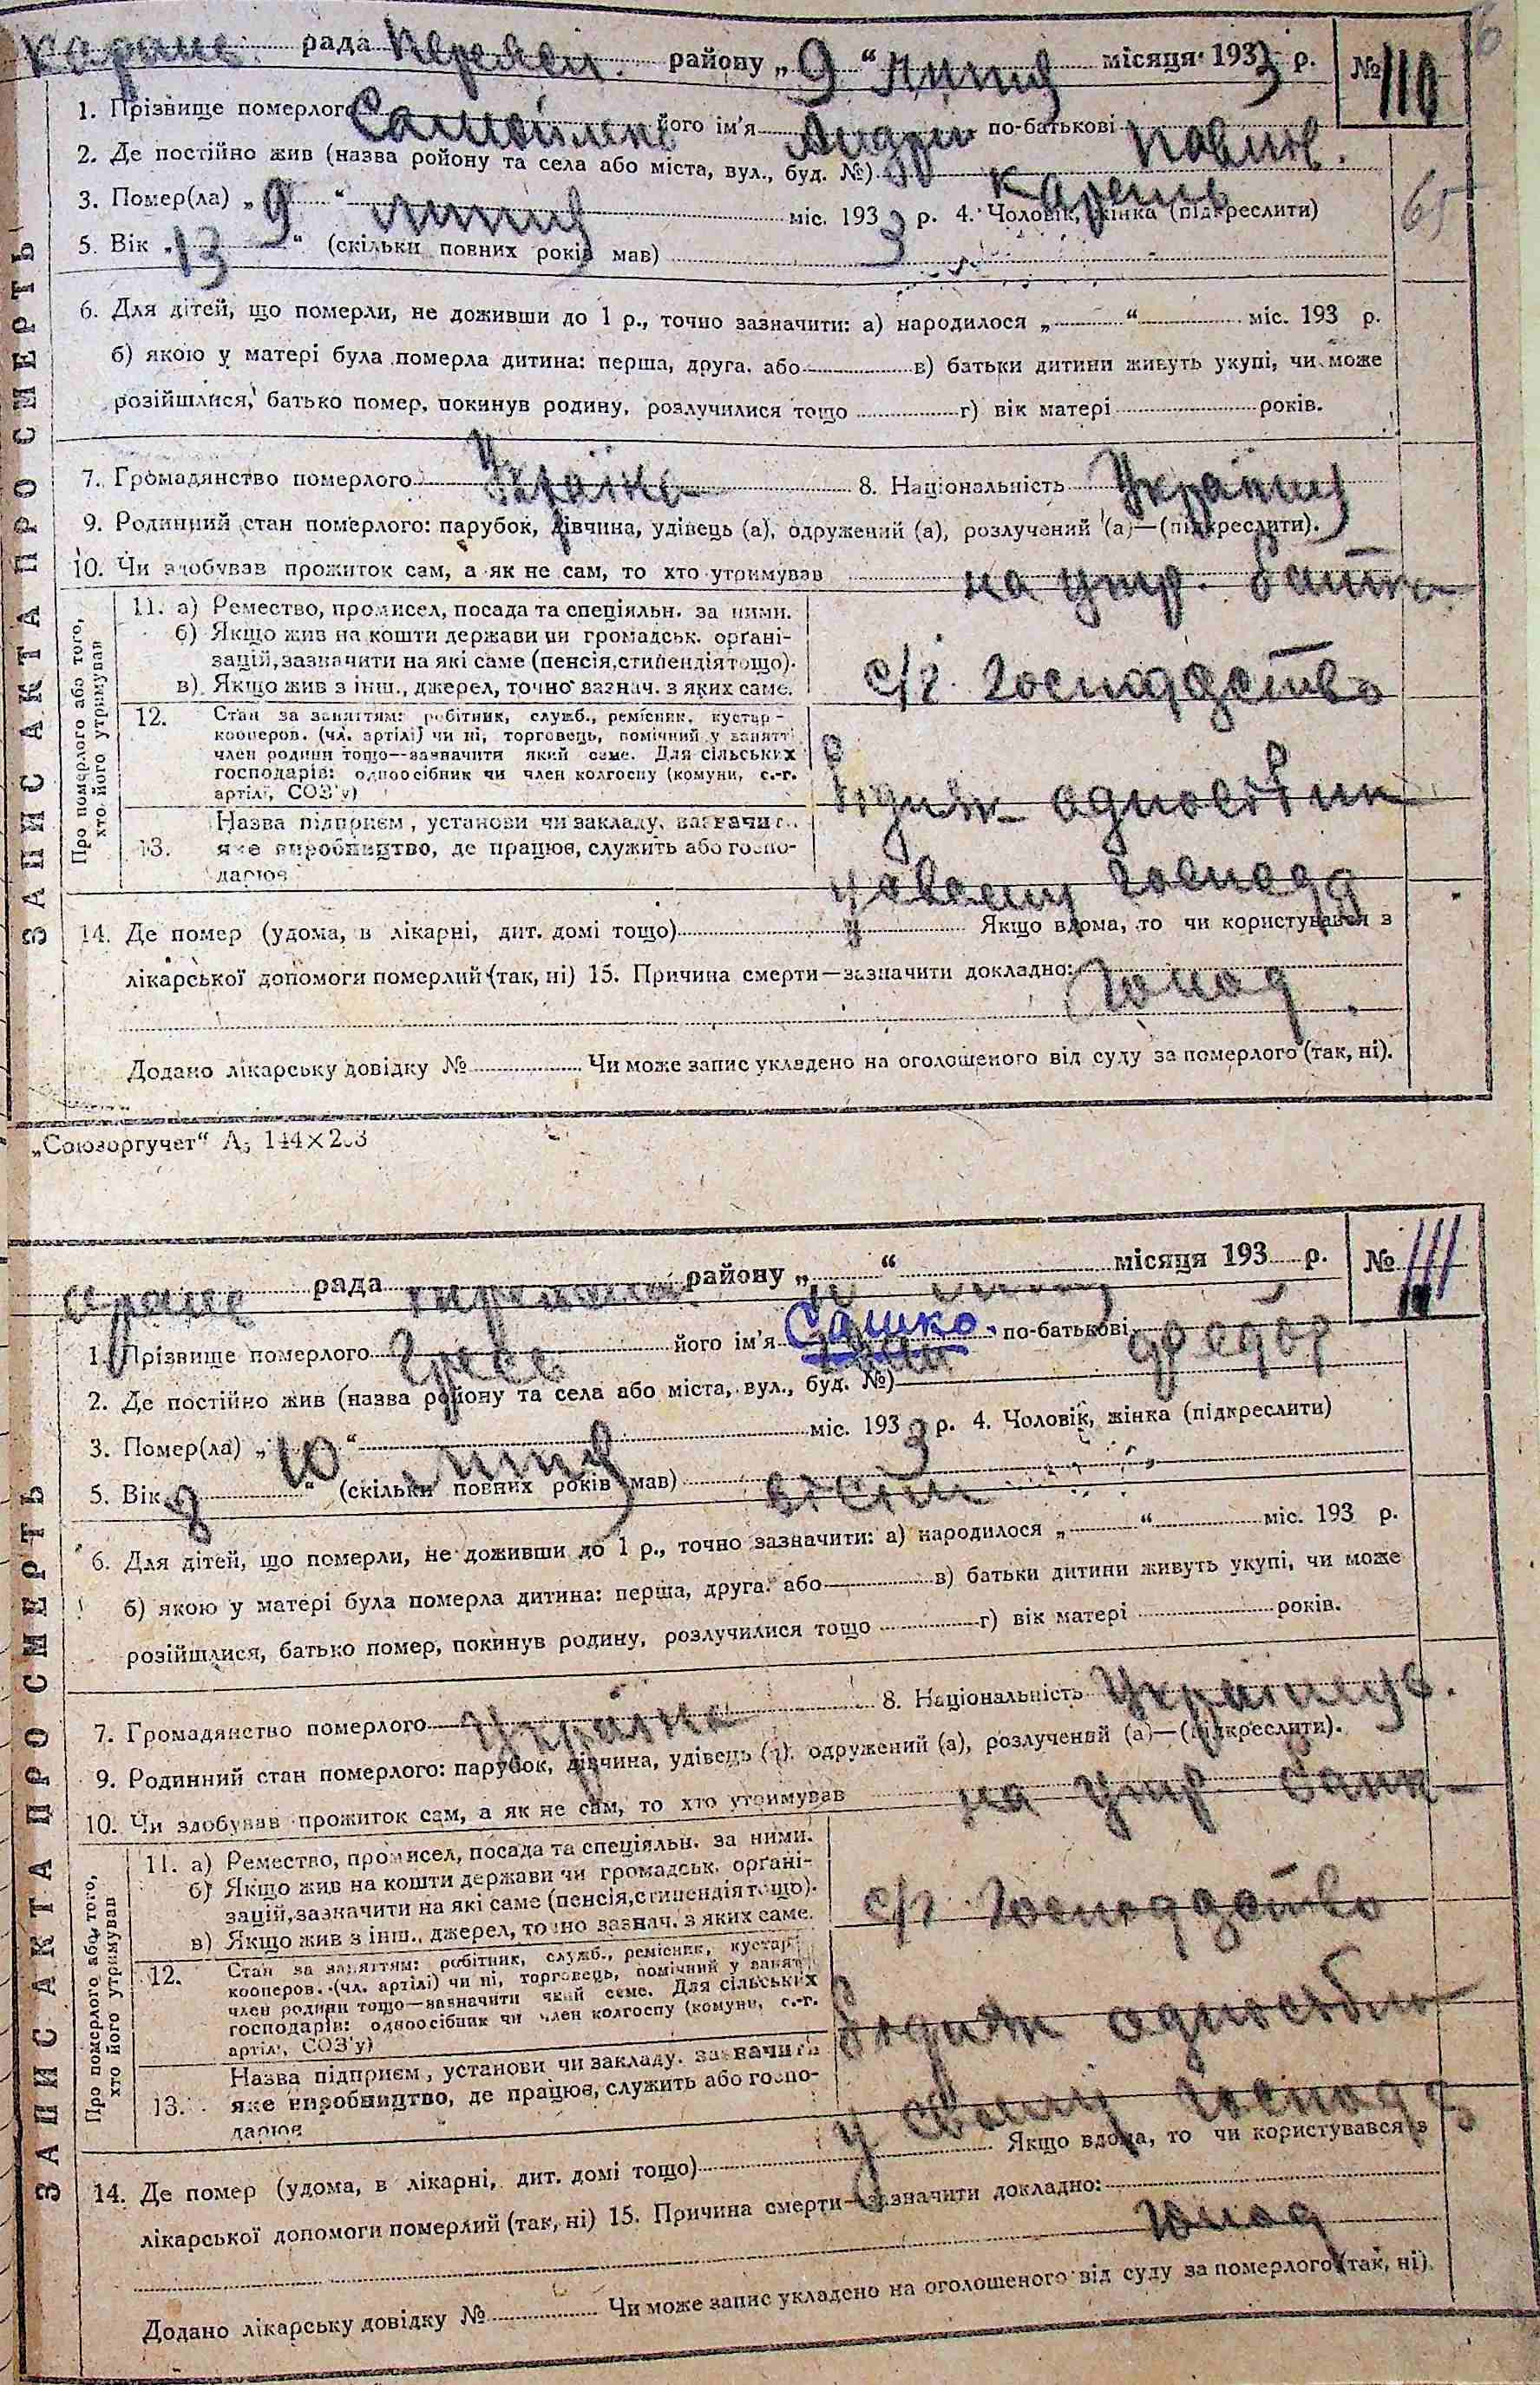 Каране рада Переясл. району „9“ липня місяця 1933 р. № 110
1. Прізвище померлого Самойленко його ім'я Андрій по-батькові Павлов.
2. Де постійно жив (назва ройону та села або міста, вул., буд. №) Карань
3. Помер(ла) „9“ липня міс. 1933 р. 4. Чоловік, жінка (підкреслити)
65
5. Вік „13“ (скільки повних років мав)
6. Для дітей, що померли, не доживши до 1 р., точно зазначити: а) народилося „ “ міс. 193 р.
б) якою у матері була померла дитина: перша, друга. або в) батьки дитини живуть укупі, чи може
розійшлися, батько помер, покинув родину, розлучилися тощо г) вік матері років.
7. Громадянство померлого Україна 8. Національність Українец
9. Родинний стан померлого: парубок, дівчина, удівець (а), одружений (а), розлучений (а)—(підкреслити).
10. Чи здобував прожиток сам, а як не сам, то хто утримував на утр. батька
ЗАПИС АКТА ПРО СМЕРТЬ
Про померлого або того, хто його утримував
11. а) Ремество, промисел, посада та спеціяльн. за ними.
б) Якщо жив на кошти держави чи громадськ. орґані-
зацій, зазначити на які саме (пенсія, стипендія тощо).
в) Якщо жив з інш., джерел, точно зазнач. з яких саме.
с/г. господдство
12. Стан за заняттям: робітник, служб., ремісник, кустар-
кооперов. (чл. артілі) чи ні, торговець, помічний у занятті
член родини тощо—зазначити який саме. Для сільських
господарів: одноосібник чи член колгоспу (комуни, с.-г.
артілі, СОЗ'у)
бідняк одноосібник
13. Назва підприєм, установи чи закладу. зазначити
яке виробництво, де працює, служить або госпо-
дарює
у своему господ
14. Де помер (удома, в лікарні, дит. домі тощо) Якщо вдома, то чи користувався з
лікарської допомоги померлий (так, ні) 15. Причина смерти—зазначити докладно: Голод
Додано лікарську довідку № Чи може запис укладено на оголошеного від суду за померлого (так, ні).
„Союзоргучет“ А5 144×203
Каране рада Переясл району „10“ липня місяця 193 р. № 111
1. Прізвище померлого Гресь його ім'я Сашко. Іван по-батькові Федор
2. Де постійно жив (назва ройону та села або міста, вул., буд. №)
3. Помер(ла) „10“ липня міс. 1933 р. 4. Чоловік, жінка (підкреслити)
5. Вік 8 “ (скільки повних років мав) вісім
6. Для дітей, що померли, не доживши до 1 р., точно зазначити: а) народилося „ “ міс. 193 р.
б) якою у матері була померла дитина: перша, друга. або в) батьки дитини живуть укупі, чи може
розійшлися, батько помер, покинув родину, розлучилися тощо г) вік матері років.
7. Громадянство померлого Україна 8. Національність Українець.
9. Родинний стан померлого: парубок, дівчина, удівець (а). одружений (а), розлучений (а)—(підкреслити).
10. Чи здобував прожиток сам, а як не сам, то хто утримував на утр. батьк
ЗАПИС АКТА ПРО СМЕРТЬ
Про померлого або того, хто його утримував
11. а) Ремество, промисел, посада та спеціяльн. за ними.
б) Якщо жив на кошти держави чи громадськ. орґані-
зацій, зазначити на які саме (пенсія, стипендія тощо).
в) Якщо жив з інш., джерел, точно зазнач. з яких саме.
с/г. господдство
12. Стан за заняттям: робітник, служб., ремісник, кустар-
кооперов. (чл. артілі) чи ні, торговець, помічний у занятті
член родини тощо—зазначити який саме. Для сільських
господарів: одноосібник чи член колгоспу (комуни, с.-г.
артілі, СОЗ'у)
бідняк одноосібн
13. Назва підприєм, установи чи закладу. зазначити
яке виробництво, де працює, служить або госпо-
дарює
у своему господ
14. Де помер (удома, в лікарні, дит. домі тощо) Якщо вдома, то чи користувався з
лікарської допомоги померлий (так, ні) 15. Причина смерти—зазначити докладно:
Голод
Додано лікарську довідку № Чи може запис укладено на оголошеного від суду за померлого (так, ні).